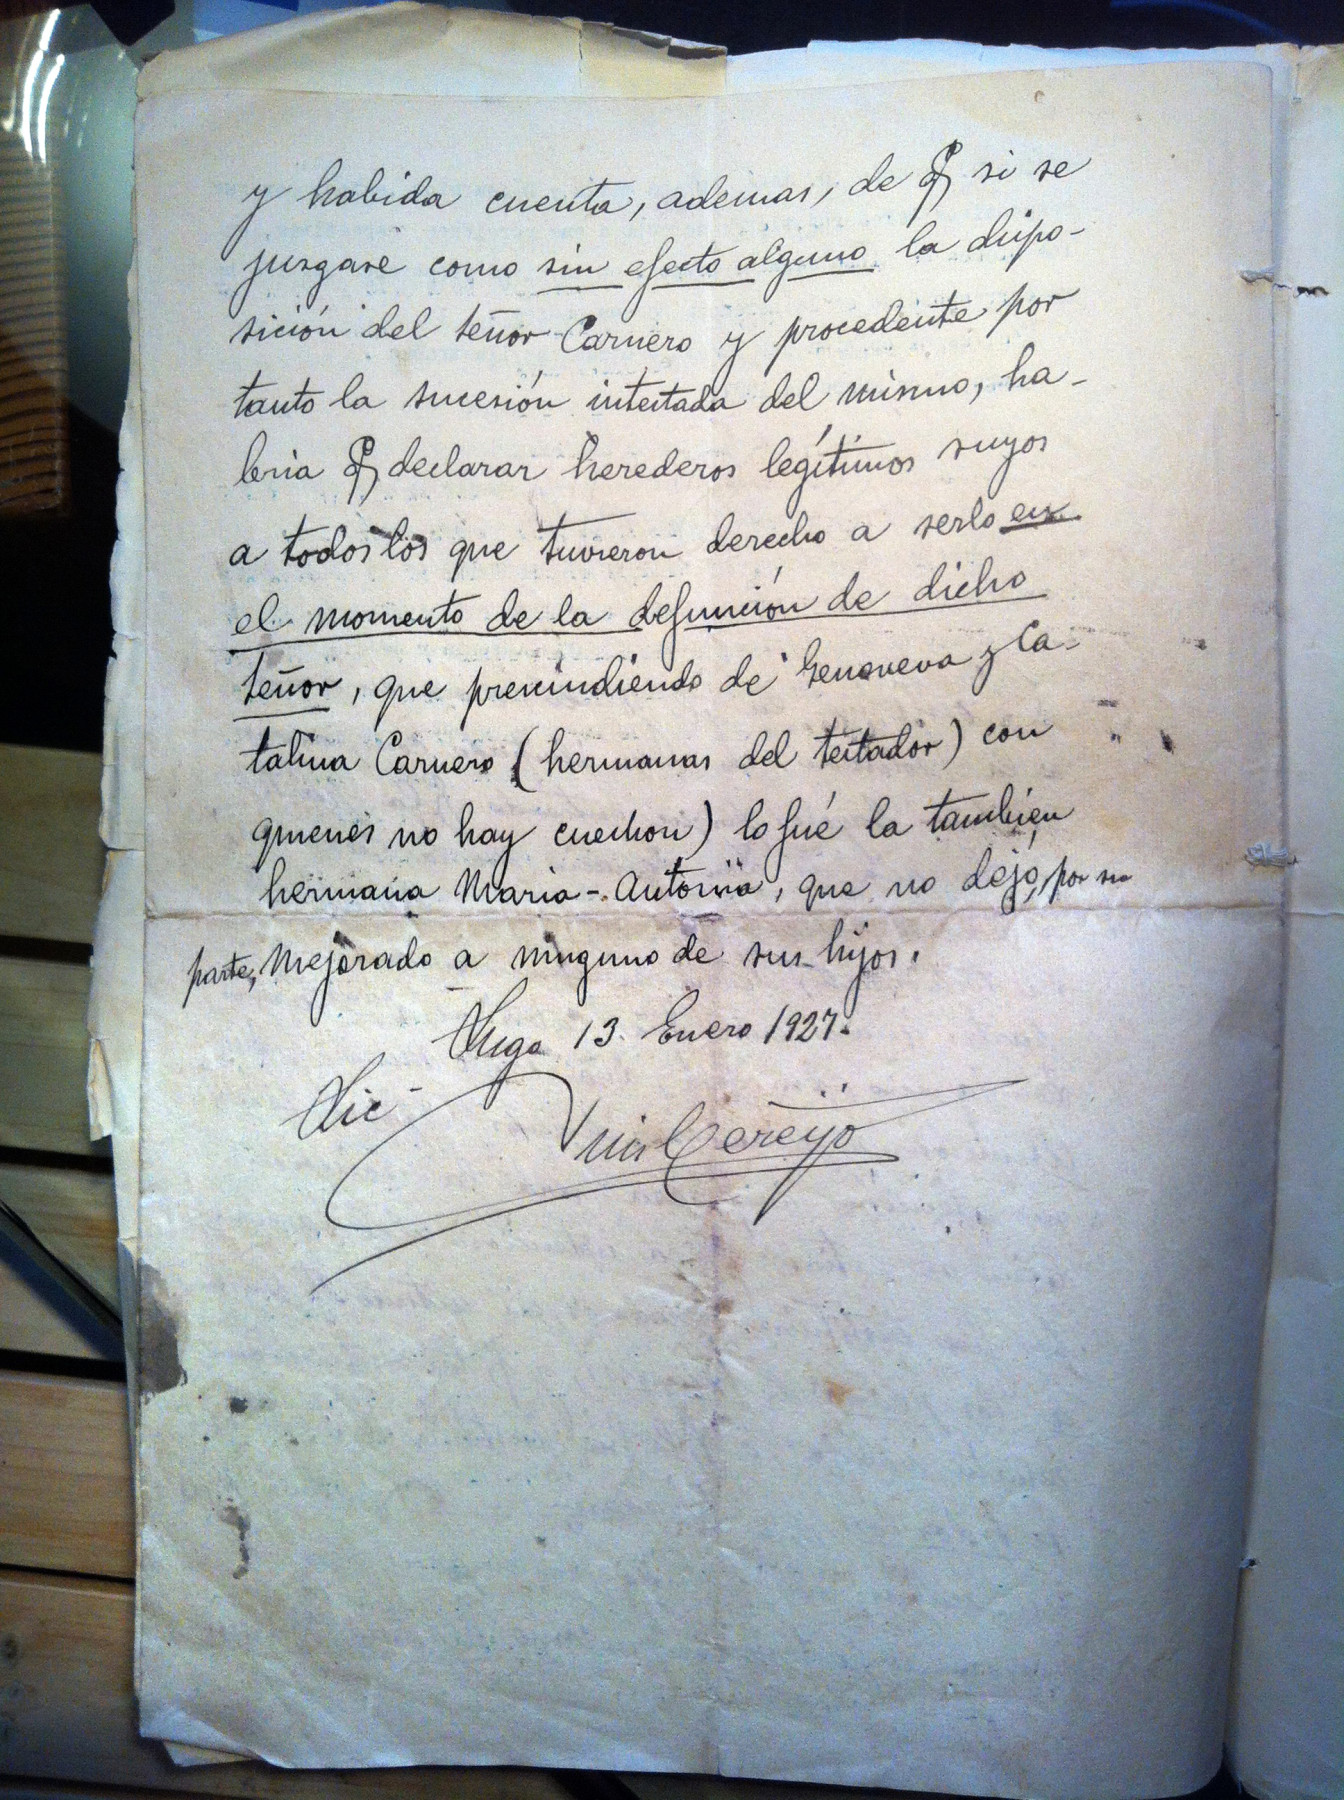 y habida cuenta, ademas, de q si se
juzgase como sin efecto alguno la dispo-
sición del señor Carnero y procedente por
tanto la sucesión intestada del mismo, ha-
bria q declarar herederos legítimos suyos
a todos los que tuvieron derecho a serlo en
el momento de la defunción de dicho
señor, que prescindiendo de Genoveva y Ca-
talina Carnero (hermanas del testador) con
quienes no hay cuestion) lo fué la también
hermana Maria-Antonia, que no dejó, por su
parte, mejorado a ninguno de sus hijos.
Lugo 13 Enero 1927.
Lic
Luis Cereijo